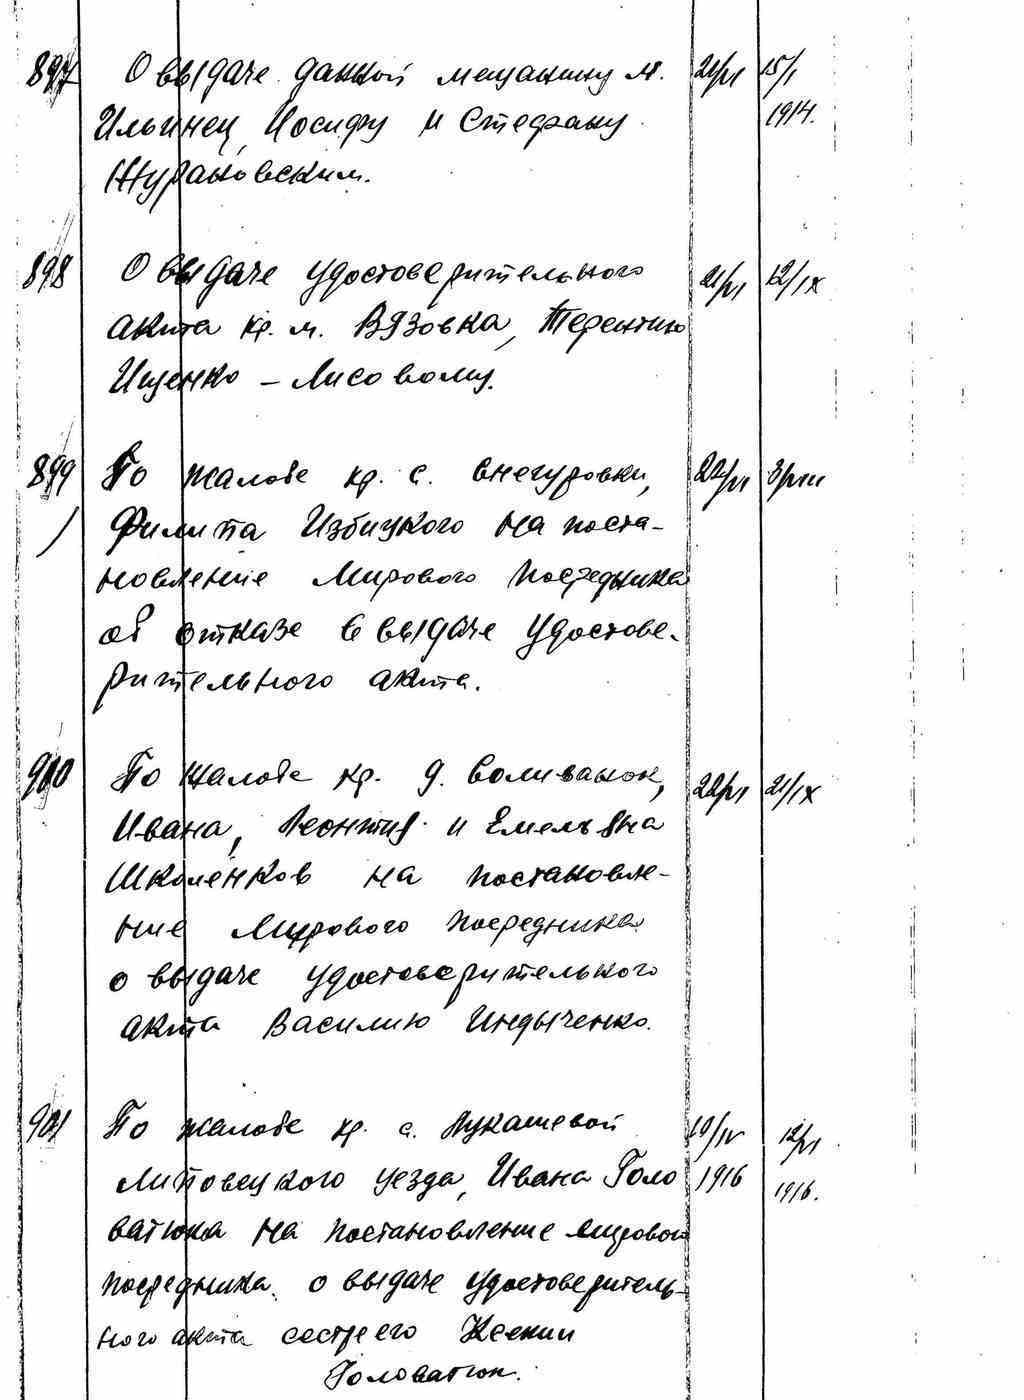 897 О выдаче данной мещанину м. 21/VI 15/I
Ильинец, Иосифу и Стефану 1914.
Журановским.
898 О выдаче удостоверительного 21/VI 12/IX
акта кр. м. Вязовка, Терентию
Ищенко - Лисовому.
899 По жалобе кр. с. Снегуровки, 22/VI 3/VIII
Филиппа Избицкого на поста-
новление Мирового Посредника
об отказе в выдаче удостове-
рительного акта.
900 По жалобе кр. д. 22/VI 21/IX
Ивана, Леонтия и Емельяна
Школенков на постановле-
ние Мирового посредника
о выдаче удостоверительного
акта Василию Индыченко.
901 По жалобе кр. с. Лукашевой 19/IV 12/VI
Липовецкого уезда, Ивана Голо 1916 1916.
ватюка на постановление мирового
посредника о выдаче удостоверитель-
ного акта сестре его Ксении
Головатюк.